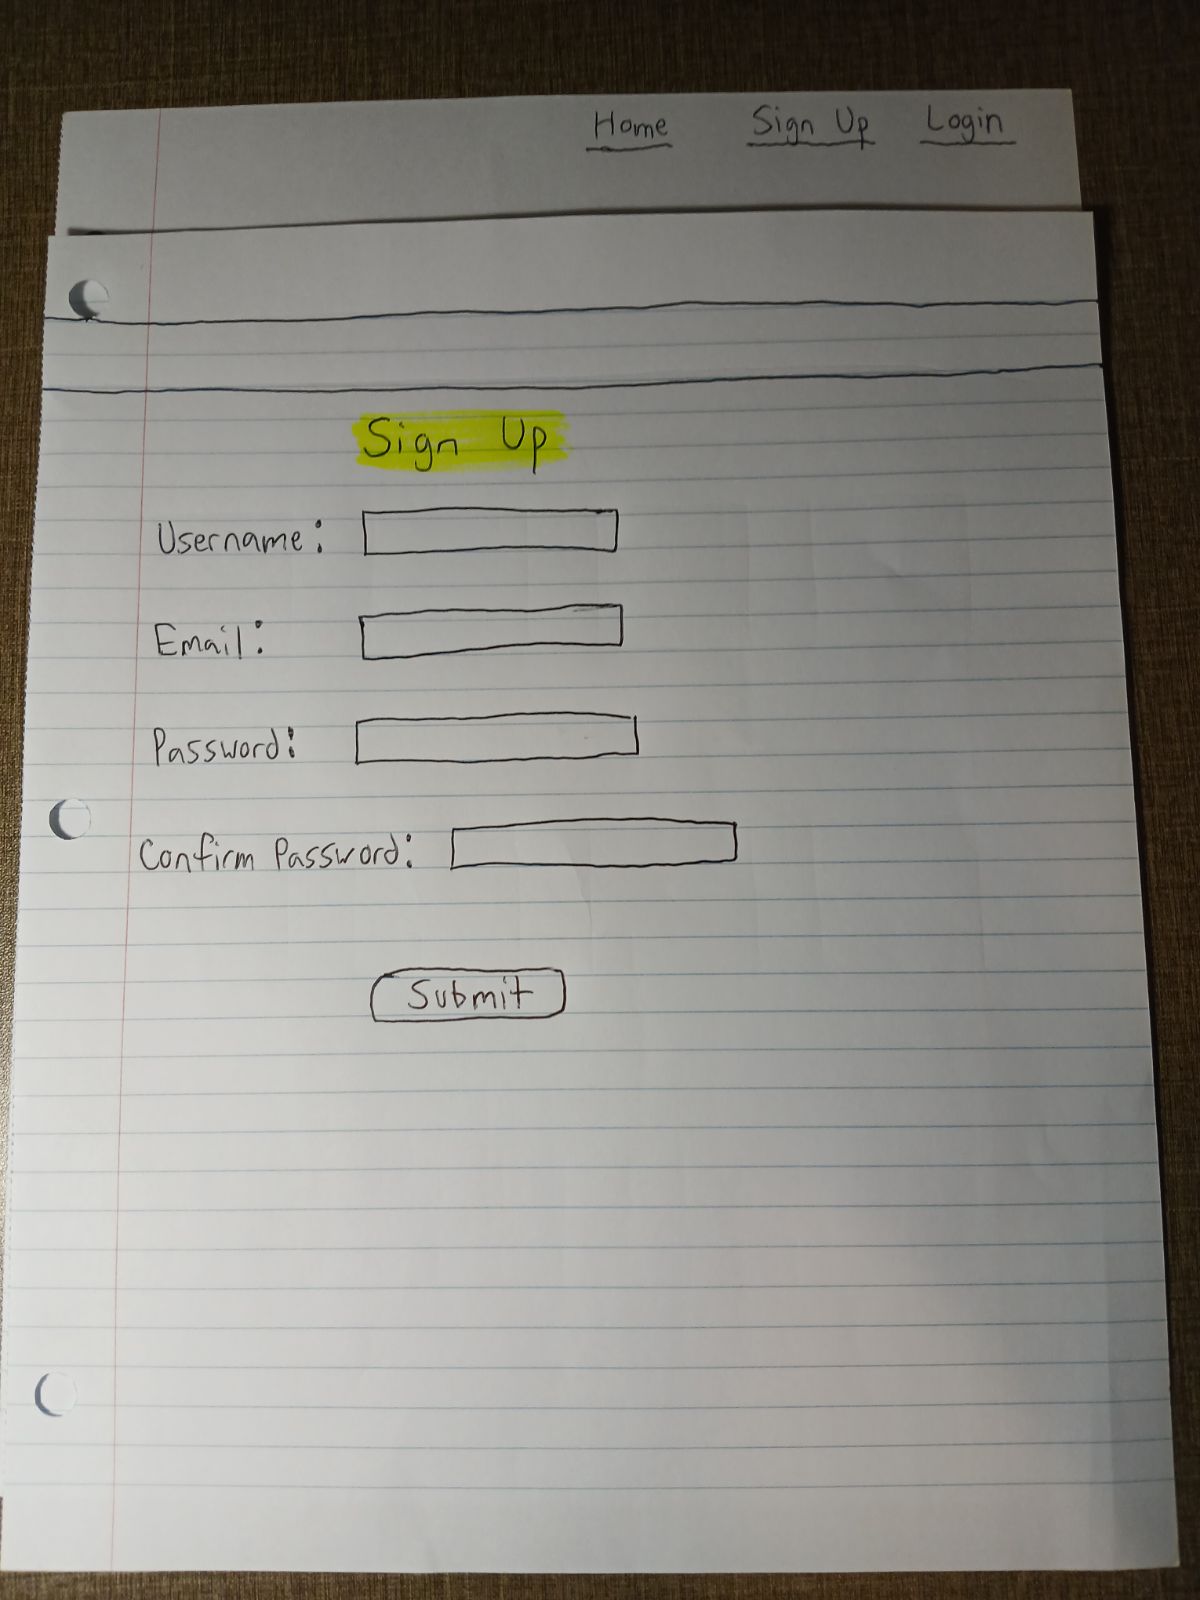 Home Sign Up Login
Sign Up
Username:
Email:
Password:
Confirm Password:
Submit